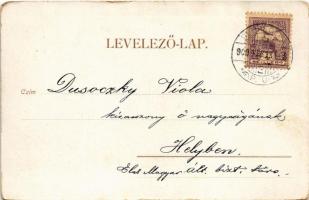 LEVELEZŐ-LAP.
Czim
Dusoczky Viola
kisasszony ő nagyságának
Helyben.
Első Magyar ált. bizt. társ.